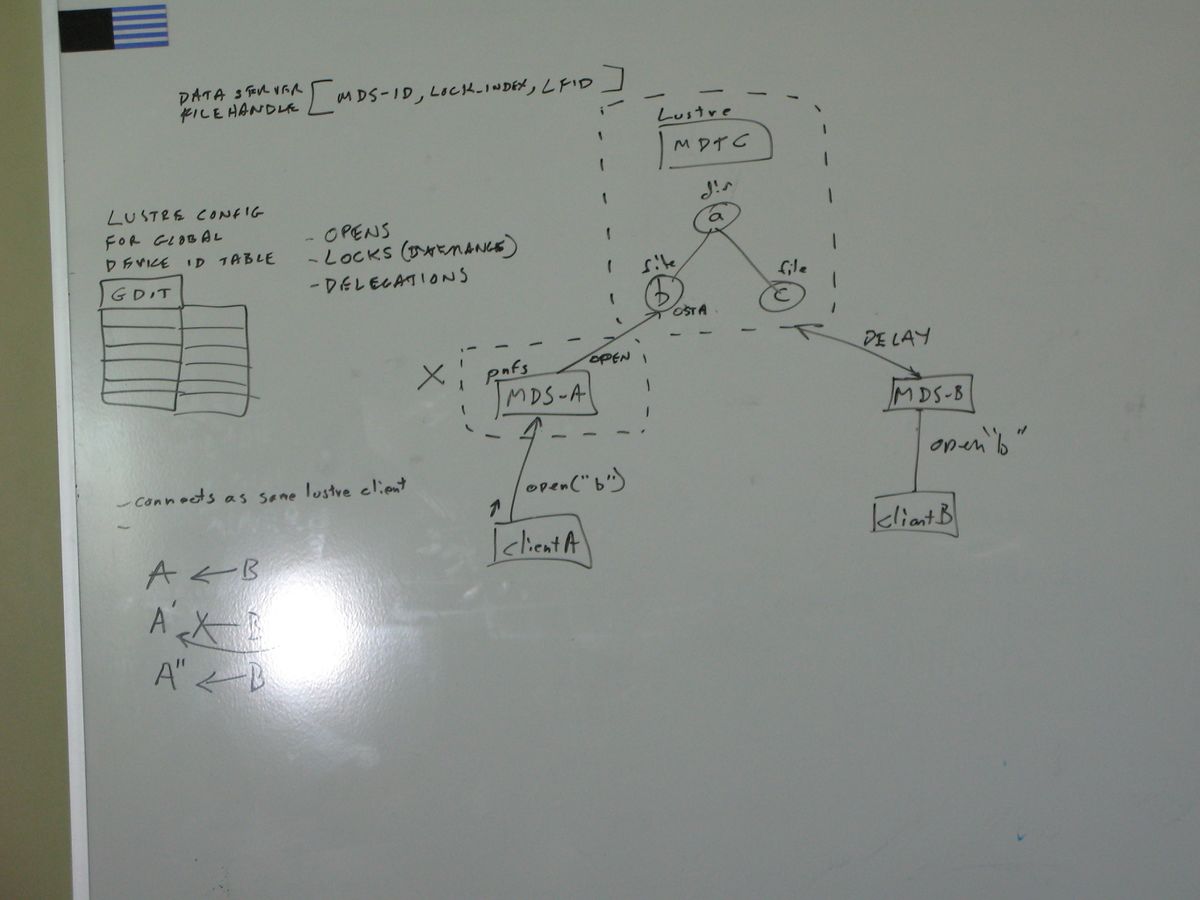 DATA SERVER
FILEHANDLE [MDS-ID, LOCK_INDEX, LFID]
Lustre
MDTC
dir
a
file
b
file
c
OSTA
LUSTRE CONFIG
FOR GLOBAL
DEVICE ID TABLE
GDIT
- OPENS
- LOCKS
- DELEGATIONS
OPEN
DELAY
X
pnfs
MDS-A
MDS-B
open("b")
open "b"
clientA
clientB
- connects as same lustre client
-
A ← B
A' X← B
A" ← B